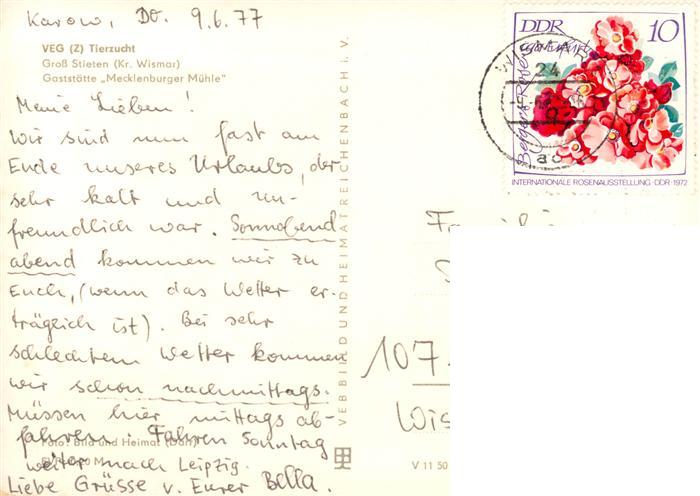 Karow, Do. 9.6.77
VEG (Z) Tierzucht
Groß Stieten (Kr. Wismar)
Gaststätte „Mecklenburger Mühle"
Meine Lieben!
Wir sind nun fast am
Ende unseres Urlaubs, der
sehr kalt und un-
freundlich war. Sonnabend
abend kommen wir zu
Euch, (wenn das Wetter er-
träglich ist). Bei sehr
schlechtem Wetter kommen
wir schon nachmittags.
Müssen hier mittags ab-
fahren. Fahren Sonntag
weiter nach Leipzig.
Liebe Grüsse v. Eurer Bella.
Foto: Bild und Heimat
VEB BILD UND HEIMAT REICHENBACH i. V.
V 11 50
DDR 10
INTERNATIONALE ROSENAUSSTELLUNG · DDR · 1972
WISMAR
24
107
Wis